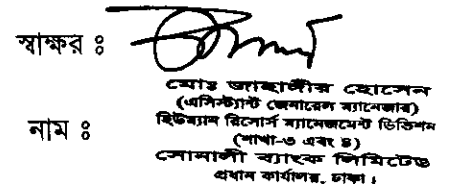 স্বাক্ষর ঃ
মোঃ জাহাঙ্গীর হোসেন
(এসিস্ট্যান্ট জেনারেল ম্যানেজার)
নাম ঃ হিউম্যান রিসোর্স ম্যানেজমেন্ট ডিভিশন
(শাখা-৩ এবং ৪)
সোনালী ব্যাংক লিমিটেড
প্রধান কার্যালয়, ঢাকা।